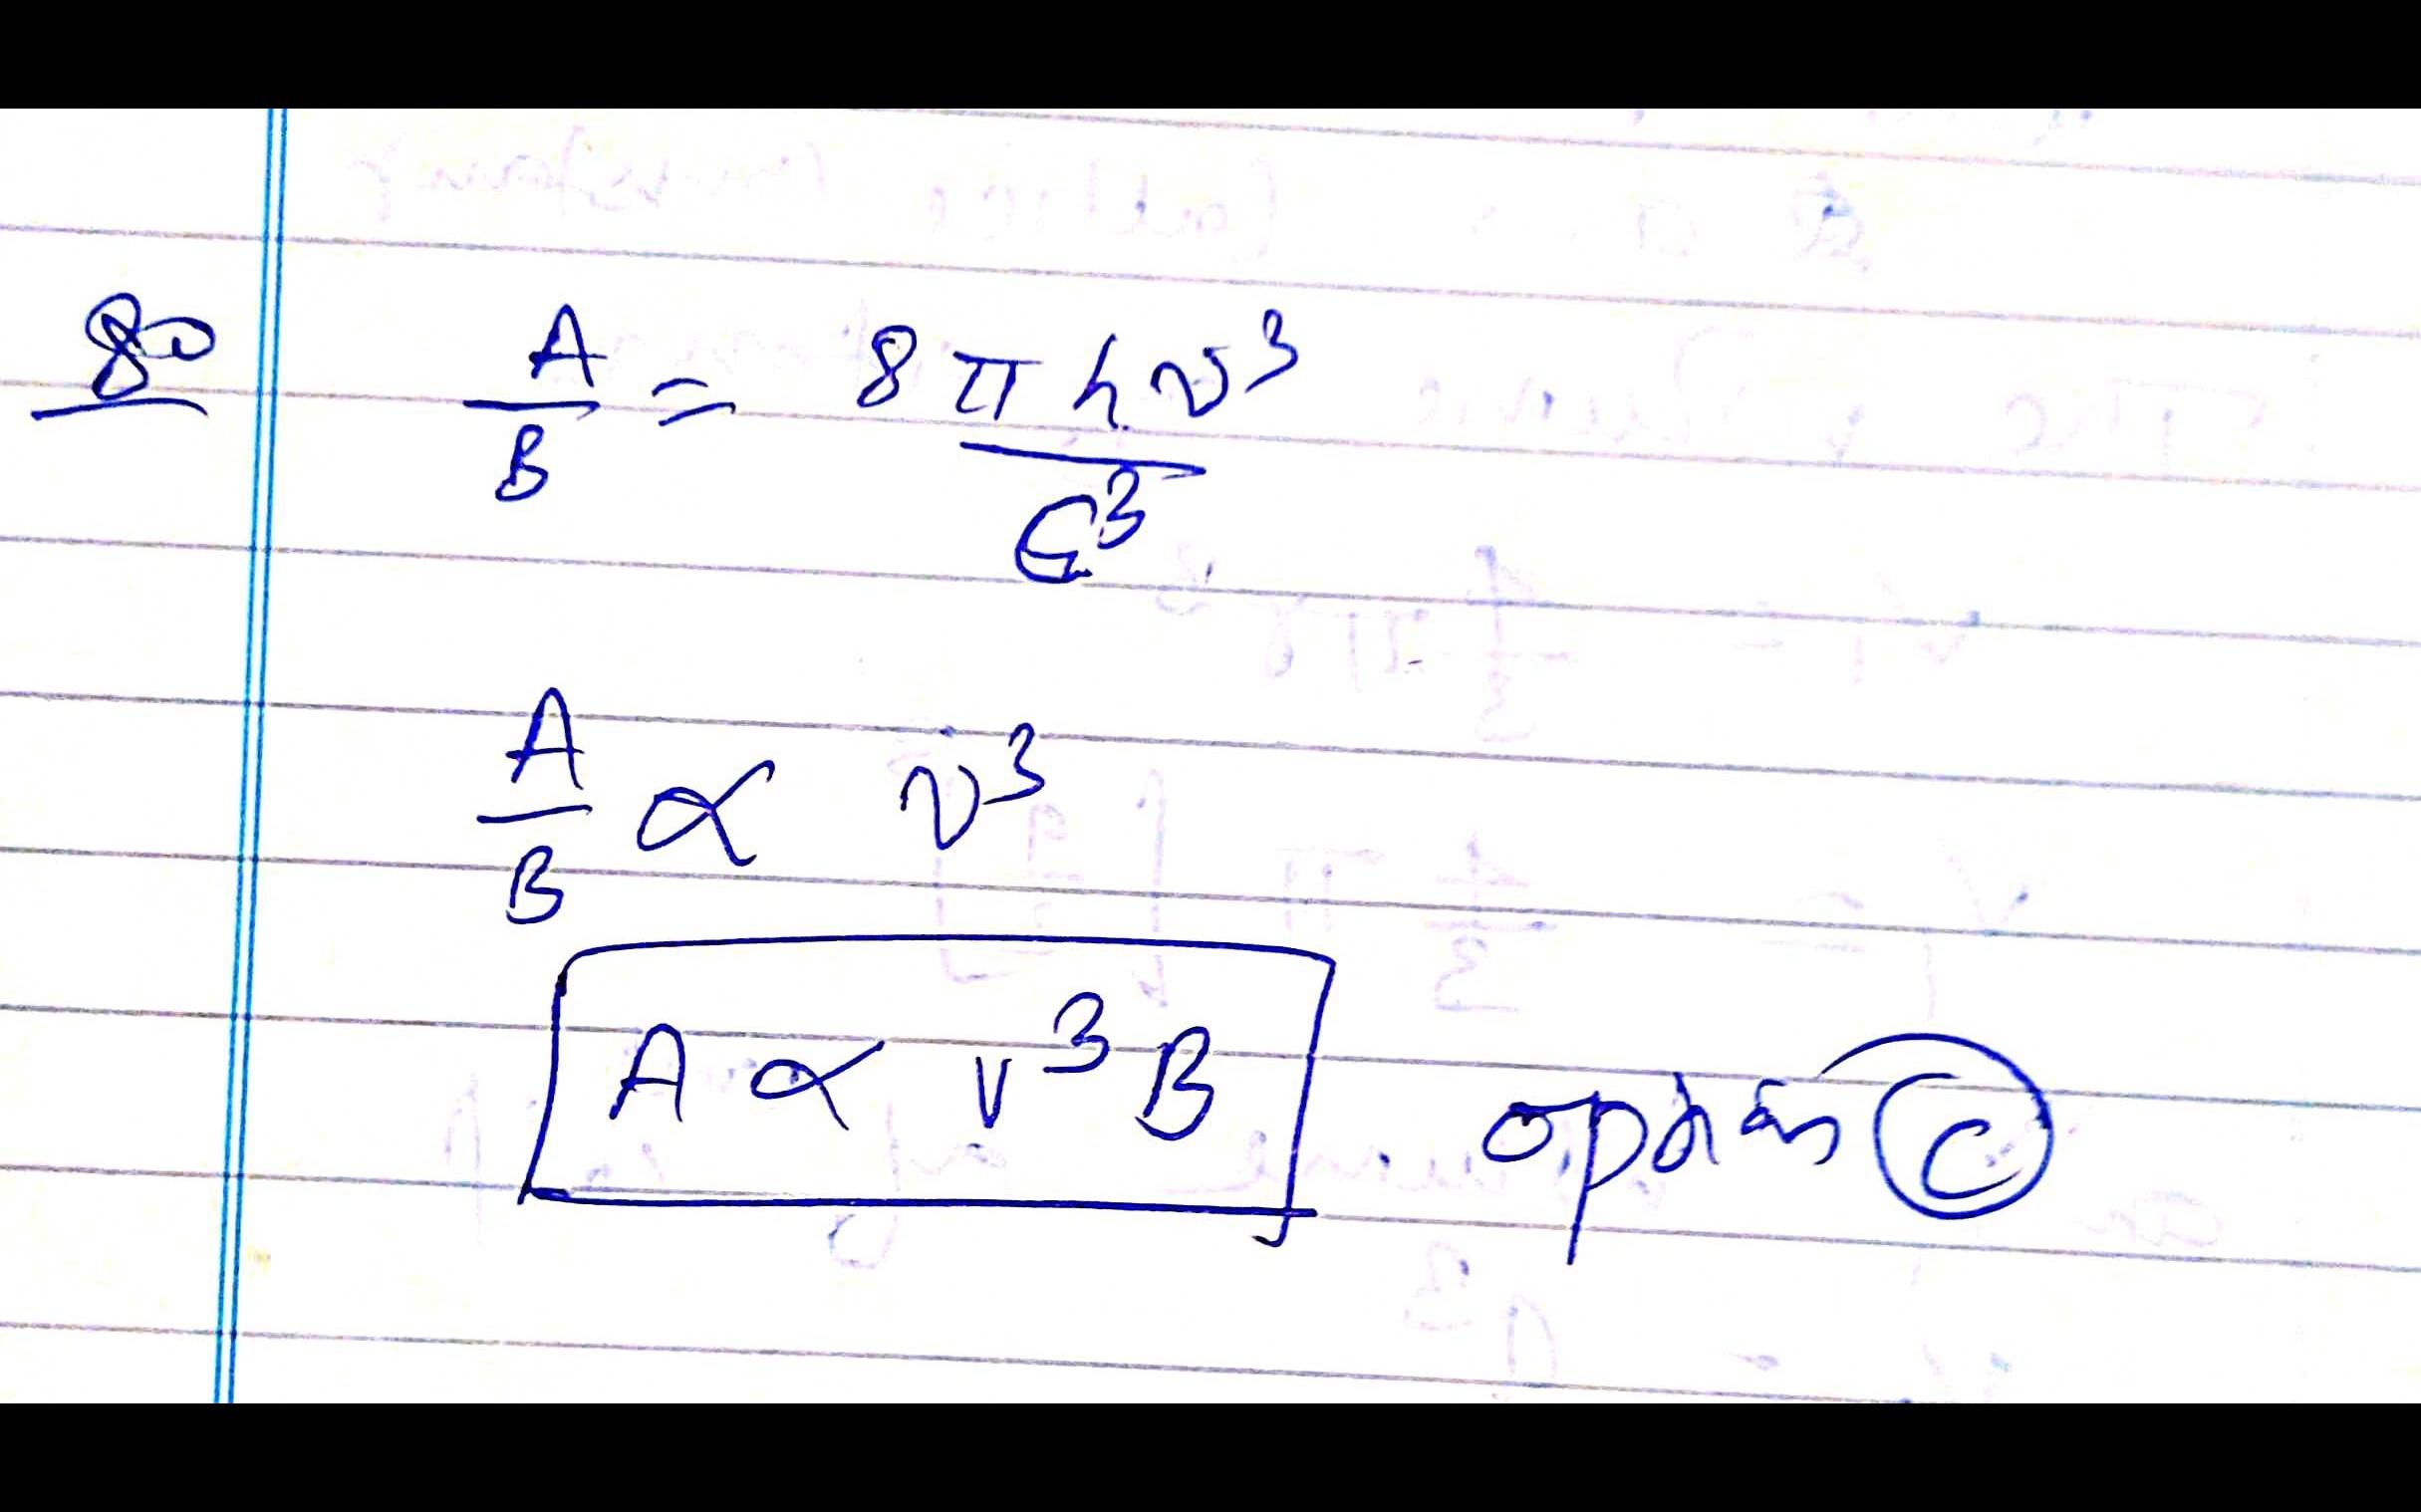 80 A/B = 8πhν³/c³
A/B ∝ ν³
A ∝ ν³B option C